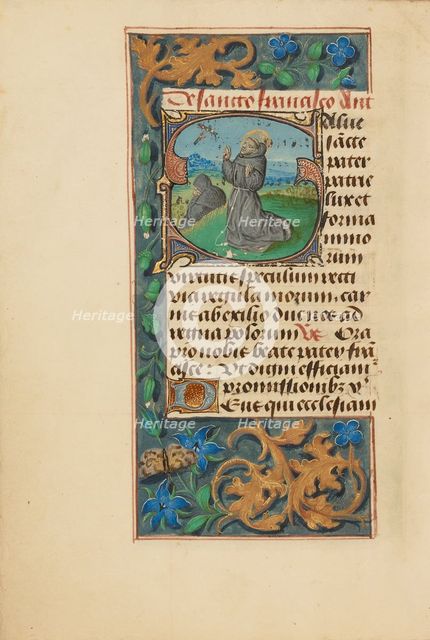 De sancto francisco Ant
Salue
sancte
pater
patrie
lux et
forma
minno
rum
virtutis speculum recti
via regula morum, car
nis ab exilio duc nos ad
regna polorum Ora
pro nobis beate pater fran
cisce: Vt digni efficiam
promissionibz
Deus qui ecclesiam
Heritage
Heritage
Heritage
Heritage
Heritage
Heritage
Heritage
Heritage